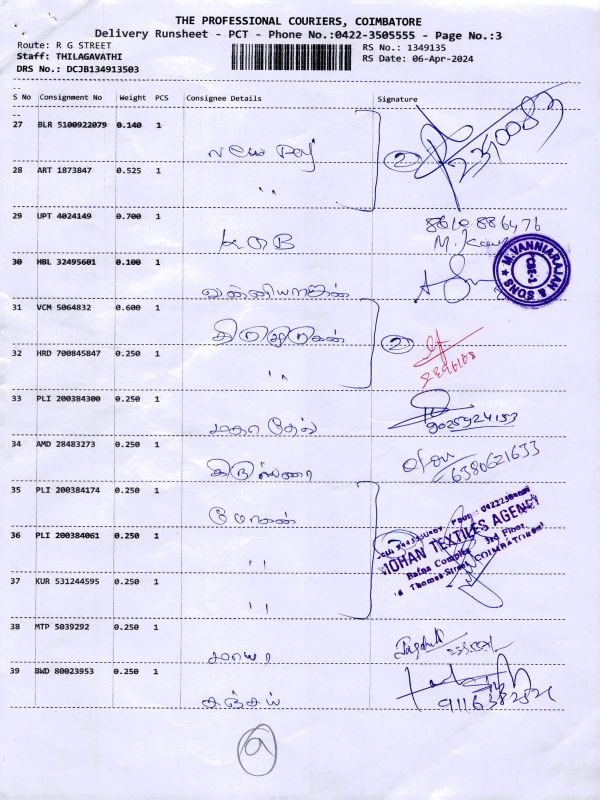 THE PROFESSIONAL COURIERS, COIMBATORE
Delivery Runsheet - PCT - Phone No.:0422-3505555 - Page No.:3
Route: R G STREET
RS No.: 1349135
Staff: THILAGAVATHI
RS Date: 06-Apr-2024
DRS No.: DCJB134913503
S No Consignment No Weight PCS Consignee Details Signature
27 BLR 5100922079 0.140 1
New
28 ART 1873847 0.525 1
" 2
29 UPT 4024149 0.700 1
8610886476
KOB M.
30 HBL 32495601 0.100 1
M.VANNIARAJAN & SONS
CBE-1
வன்னியராஜன்
31 VCM 5064832 0.600 1
திருமுருகன் 2
32 HRD 700845847 0.250 1
"
33 PLI 200384300 0.250 1
9025924153
34 AMD 28483273 0.250 1
6380621633
35 PLI 200384174 0.250 1
மோகன்
36 PLI 200384061 0.250 1
MOHAN TEXTILES AGENCY
Complex 3rd Floor
Thomas Street, COIMBATORE
"
37 KUR 531244595 0.250 1
"
38 MTP 5039292 0.250 1
மாயா
39 BWD 80023953 0.250 1
சஞ்சய்